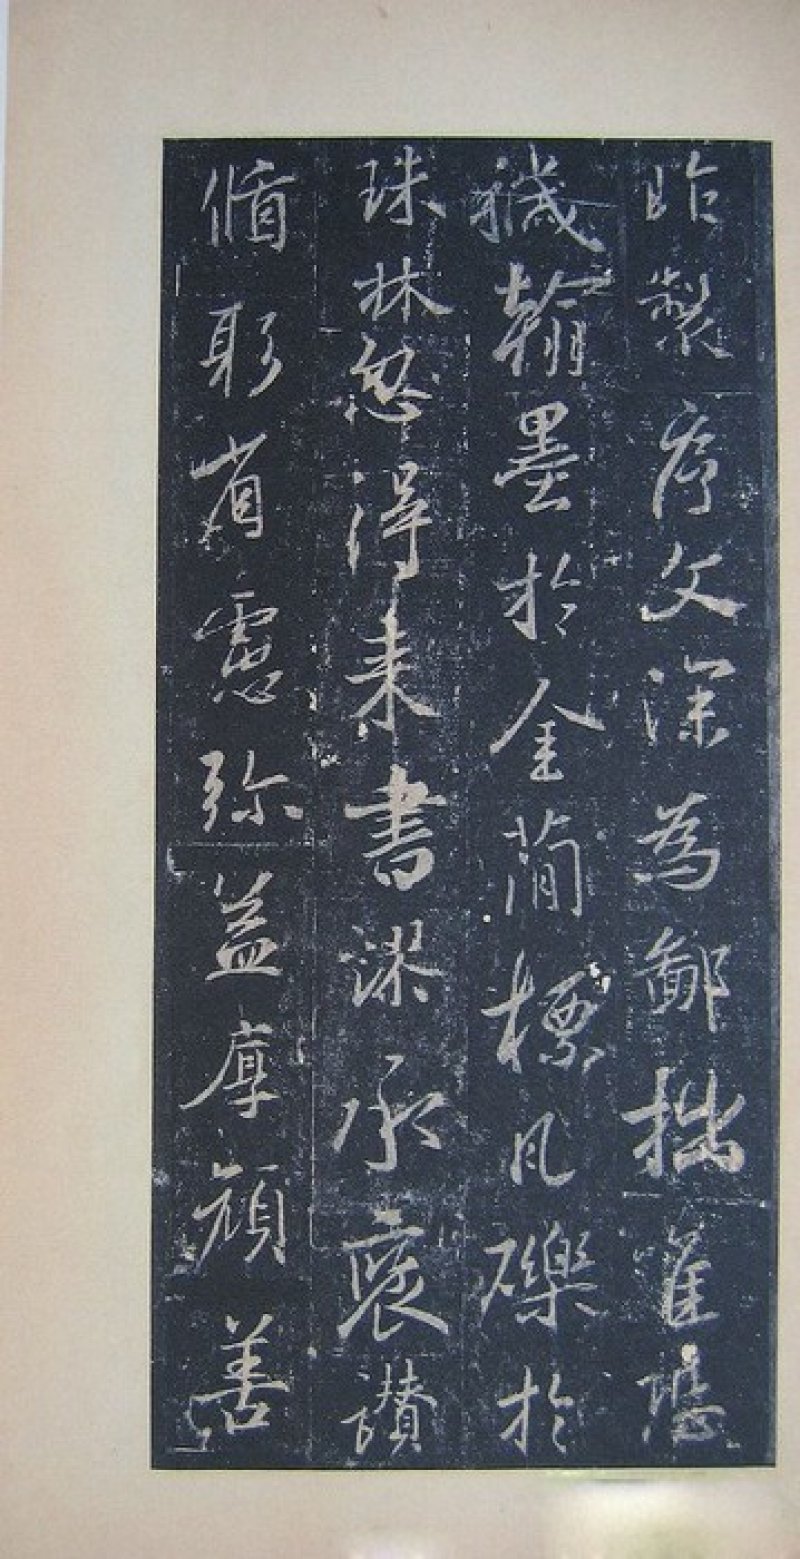 昨製序文深為鄙拙唯恐
穢翰墨於金簡標瓦礫於
珠林忽得来書謬承褒讃
循躬省慮弥益厚顔善